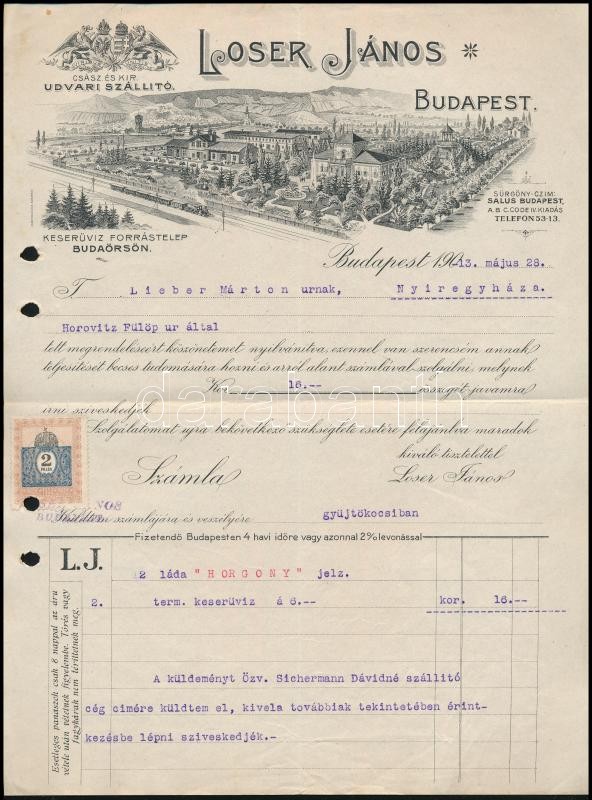 LOSER JÁNOS
BUDAPEST.
CSÁSZ. ÉS KIR.
UDVARI SZÁLLITÓ.
SÜRGÖNY-CZIM:
SALUS BUDAPEST,
A.B.C. CODE IV. KIADÁS
TELEFON 53-13.
KESERÜVIZ FORRÁSTELEP
BUDAÖRSÖN.
Budapest 1913. május 28.
T. Lieber Márton urnak, Nyiregyháza.
Horovitz Fülöp ur által
tett megrendeleseért köszönetemet nyilvánitva, ezennel van szerencsém annak
teljesitését becses tudomására hozni és arról alant számlával szolgálni, melynek
Kor 16.-- összegét javamra
irni sziveskedjék
Szolgálatomat ujra bekövetkező szükséglete esetére felajánlva maradok
kiváló tisztelettel
Számla
Loser János
2
FILLÉR
Küldtem számlájára és veszélyére gyüjtökocsiban
Fizetendő Budapesten 4 havi időre vagy azonnal 2% levonással
L.J.
2 láda "HORGONY" jelz.
2. term. keserüviz á 8.-- kor. 16.--
A küldeményt Özv. Sichermann Dávidné szállitó
cég cimére küldtem el, kivela továbbiak tekintetében érint-
kezésbe lépni sziveskedjék.-
Esetleges panaszok csak 8 nappal az áru
vétele után vétetnek figyelembe. Törés vagy
fagykárak nem téríttetnek meg.
darabanth